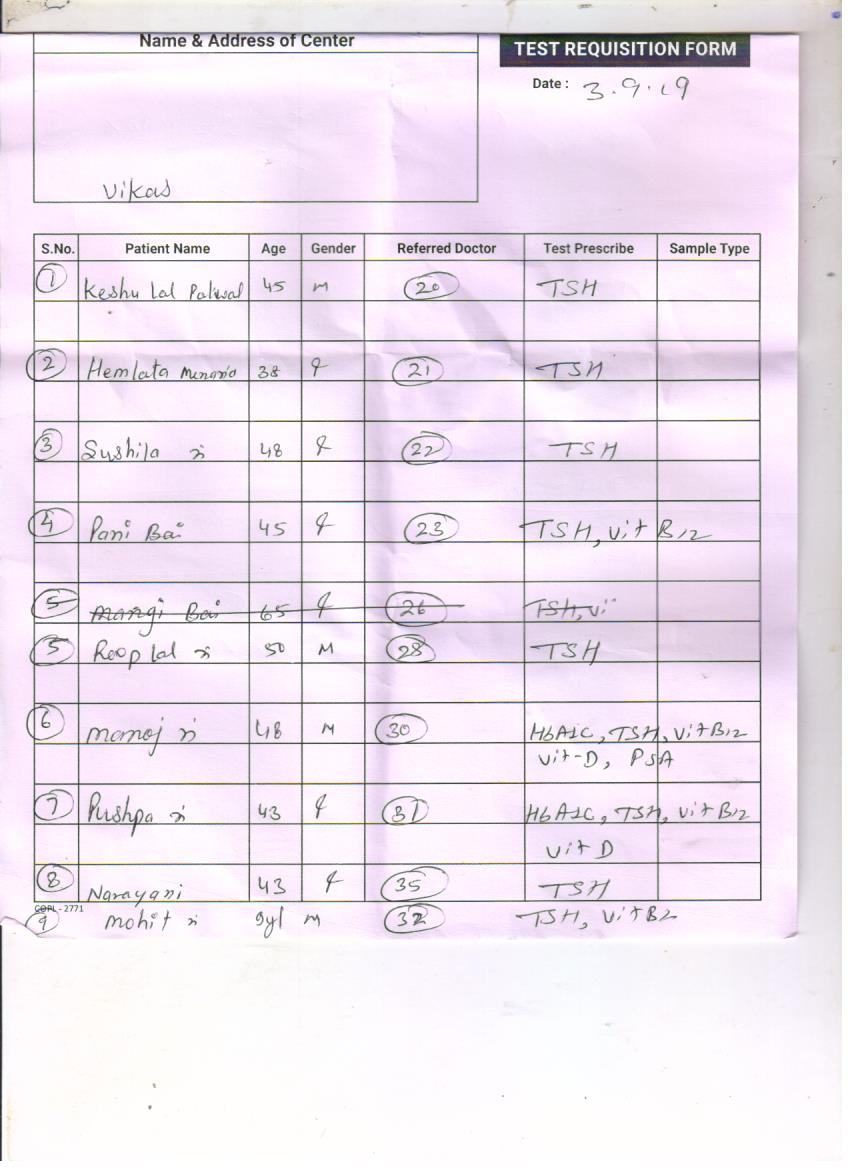 Name & Address of Center
TEST REQUISITION FORM
Date : 3.9.19
Vikas
S.No. Patient Name Age Gender Referred Doctor Test Prescribe Sample Type
1 Keshu Lal Paliwal 45 M 20 TSH
2 Hemlata Menaria 38 F 21 TSH
3 Sushila 48 F 22 TSH
4 Pani Bai 45 F 23 TSH, Vit B12
5 Mangi Bai 65 F 26 TSH, Vi
5 Roop Lal 50 M 28 TSH
6 Manoj 48 M 30 HbA1C, TSH, Vit B12
Vit-D, PSA
7 Pushpa 43 F 31 HbA1C, TSH, Vit B12
Vit D
8 Narayani 43 F 35 TSH
COPL - 2771
9 Mohit 9yl M 32 TSH, Vit B12